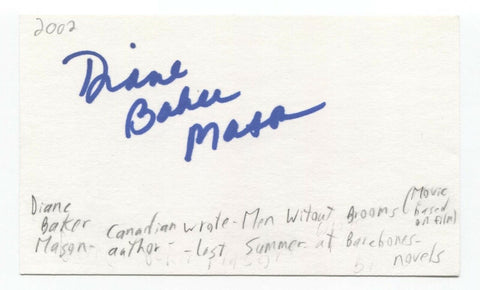 2002
Diane
Baker
Mason
Diane
Baker
Mason-
Canadian
author-
wrote- Men Witout Brooms (Movie based on film)
-last Summer at Barebones-
novels